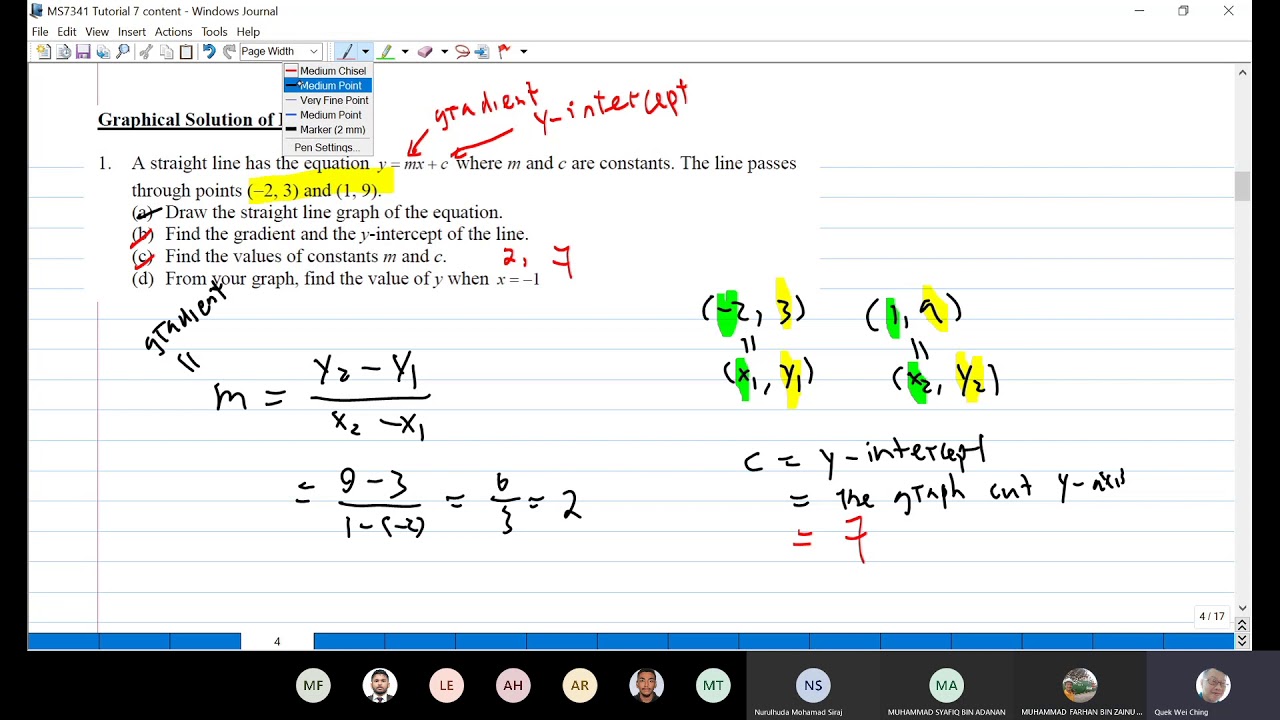 MS7341 Tutorial 7 content - Windows Journal
File Edit View Insert Actions Tools Help
Page Width
Medium Chisel
Medium Point
Very Fine Point
Medium Point
Marker (2 mm)
Pen Settings...
gradient
y-intercept
Graphical Solution of
1. A straight line has the equation y = mx + c where m and c are constants. The line passes
through points (–2, 3) and (1, 9).
(a) Draw the straight line graph of the equation.
(b) Find the gradient and the y-intercept of the line.
(c) Find the values of constants m and c. 2, 7
(d) From your graph, find the value of y when x = –1
gradient
=
m = (y₂ – y₁) / (x₂ – x₁)
= (9 – 3) / (1 – (–2)) = 6/3 = 2
(–2, 3) (1, 9)
= =
(x₁, y₁) (x₂, y₂)
c = y-intercept
= the graph cut y-axis
= 7
4 / 17
4
MF LE AH AR MT NS MA
Nurulhuda Mohamad Siraj MUHAMMAD SYAFIQ BIN ADANAN MUHAMMAD FARHAN BIN ZAINU ... Quek Wei Ching